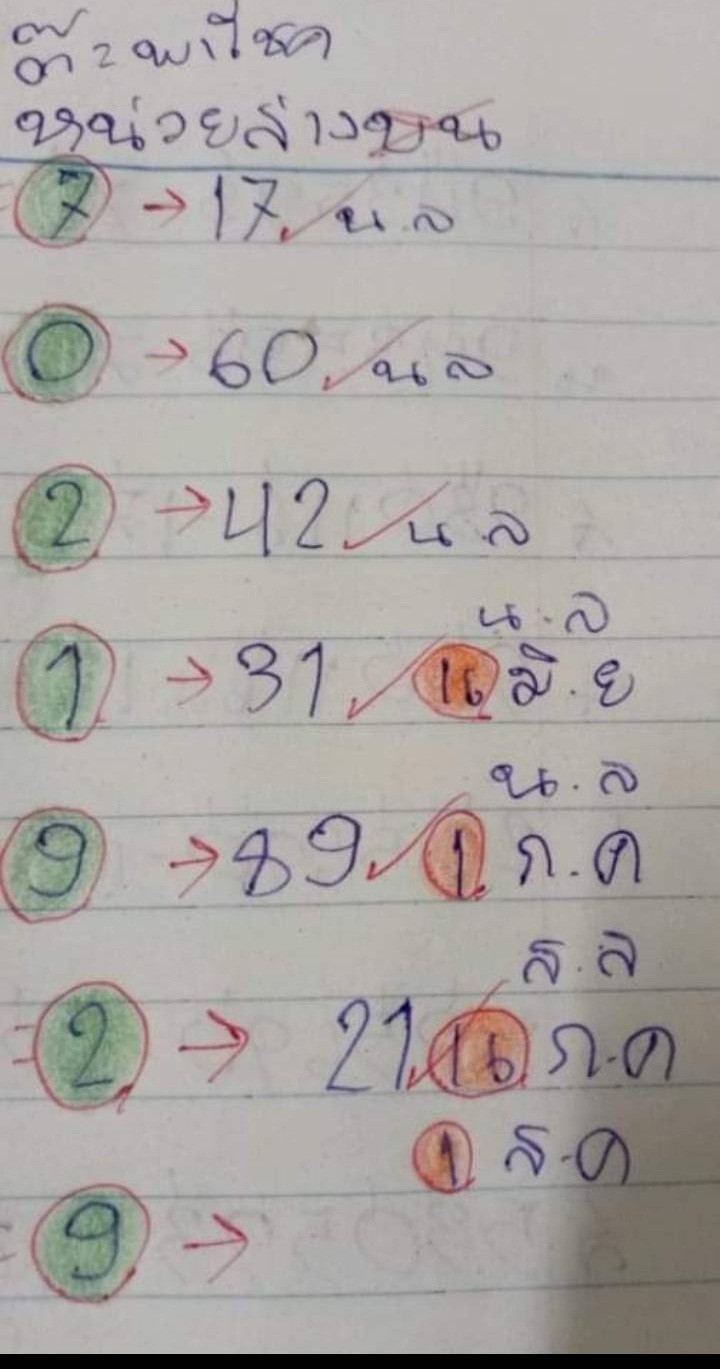 ต๊ะพาโชค
หน่วยล่างบน
7 → 17 น.ล
0 → 60 น ล
2 → 42 น.ล
น.ล
1 → 31 16 มิ.ย
น.ล
9 → 89 1 ก.ค
ส.ล
=2 → 21 16 ก.ค
1 ส.ค
=9 →